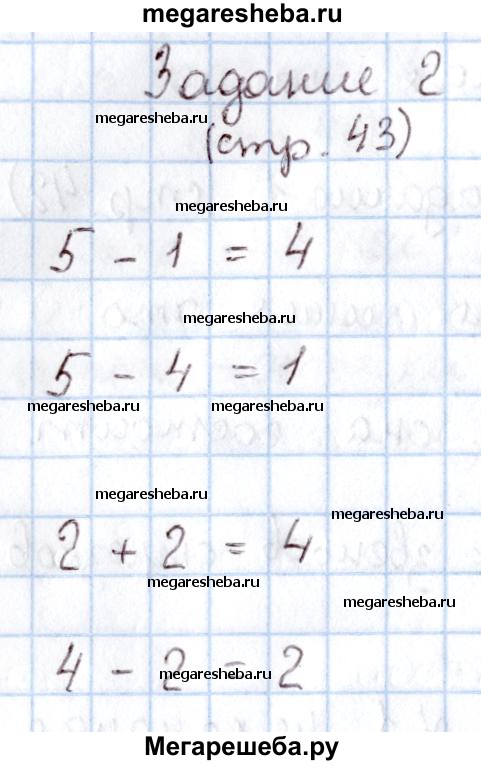 megaresheba.ru
Задание 2
megaresheba.ru
(стр. 43)
megaresheba.ru
5 - 1 = 4
megaresheba.ru
5 - 4 = 1
megaresheba.ru megaresheba.ru
megaresheba.ru
megaresheba.ru
2 + 2 = 4
megaresheba.ru
megaresheba.ru
4 - 2 = 2
megaresheba.ru
Мегарешеба.ру